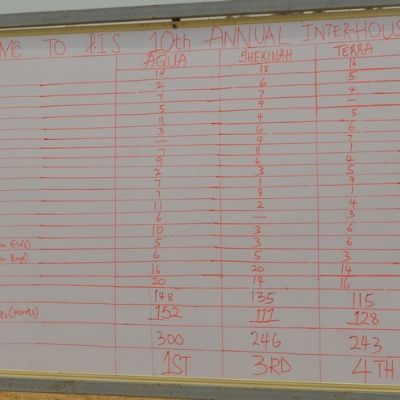 TO P.I.S 10th ANNUAL INTER-HOUS
AQUA SHEKINAH TERRA
14 18 16
2 6 5
7 7 4
5 9 —
11 4 5
3 6 6
— 9 7
7 11 1
9 6 4
2 3 5
7 1 9
7 8 1
11 2 4
6 — 3
10 3 6
5 3 6
6 5 3
16 20 14
20 14 16
148 135 115
(points) 152 111 128
300 246 243
1ST 3RD 4TH